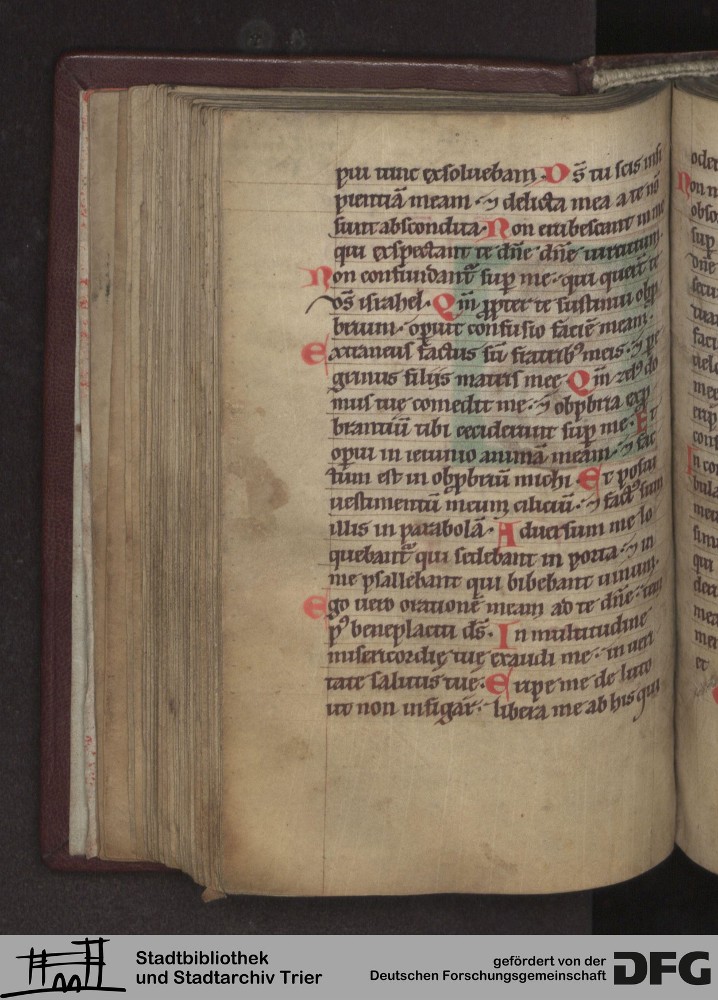 pui tunc exsoluebam. Ds̄ tu scis insi
pientiā meam. ⁊ delicta mea a te nō
sunt abscondita. Non erubescant in me
qui exspectant te dn̄e dn̄e uirtutum.
Non confundant᷑ suꝑ me. qui querūt te
ds̄ israhel. Qm̄ ꝓpter te sustinui obp
brium. opuit confusio faciē meam.
Extraneus factus sū fratribꝰ meis. ⁊ pe
grinus filiis matris mee Qm̄ zelꝰ do
mus tue comedit me. ⁊ obpbria exp
brantiū tibi ceciderunt suꝑ me. Et
opui in ieiunio animā meam. ⁊ fac
tum est in obpbrium michi. Et posui
uestimentū meum ciliciū. ⁊ factꝰ sum
illis in parabolā. Aduersum me lo
quebant᷑ qui sedebant in porta. ⁊ in
me psallebant qui bibebant uinum.
Ego uero orationē meam ad te dn̄e. tem
pꝰ beneplaciti ds̄. In multitudine
misericordię tue exaudi me. in ueri
tate salutis tue. Eripe me de luto
ut non infigar. libera me ab his qui
oder
Non n
obso
suꝑ
dn̄e
secu
tuar
faci
uelo
mee
erip
conf
In co
bula
meu
simu
qui
deri
mea
mei
et
Stadtbibliothek
und Stadtarchiv Trier
gefördert von der
Deutschen Forschungsgemeinschaft
DFG